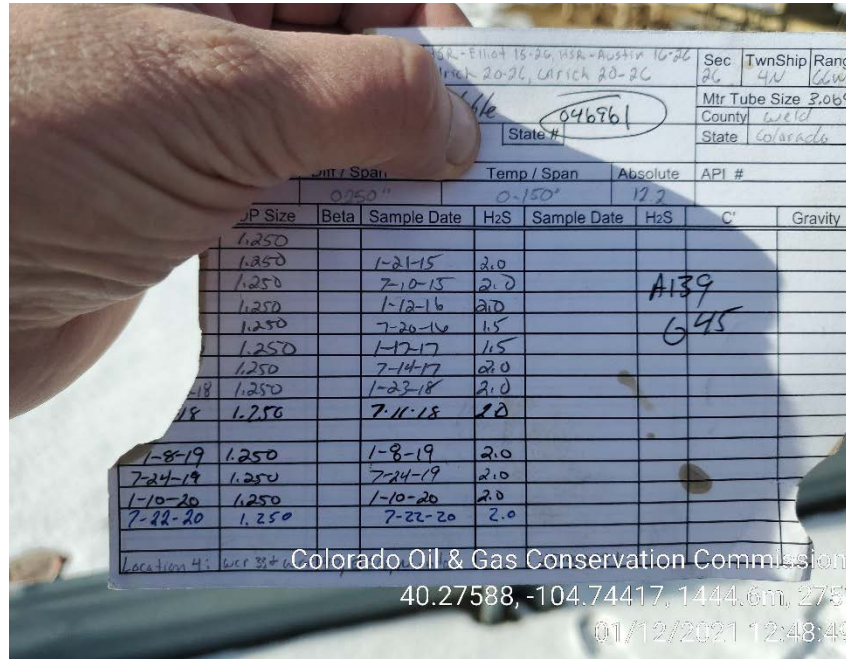 HSR-Elliot 15-26, HSR-Austin 16-26
20-26, Unrich 20-26
Sec TwnShip Rang
26 4N 66W
Mtr Tube Size 3.069
046961
County Weld
State #
State Colorado
Diff / Span Temp / Span Absolute API #
0-250" 0-150° 12.2
OP Size Beta Sample Date H2S Sample Date H2S C' Gravity
1.250
1.250 1-21-15 2.0
1.250 7-10-15 2.0 A139
1.250 1-12-16 2.0
1.250 7-20-16 1.5 G45
1.250 1-17-17 1.5
1.250 7-14-17 2.0
-18 1.250 1-23-18 2.0
18 1.250 7-11-18 2.0
1-8-19 1.250 1-8-19 2.0
7-24-19 1.250 7-24-19 2.0
1-10-20 1.250 1-10-20 2.0
7-22-20 1.250 7-22-20 2.0
Location 4: wcr 33 +
Colorado Oil & Gas Conservation Commission
40.27588, -104.74417, 1444.6m, 275°
01/12/2021 12:48:49